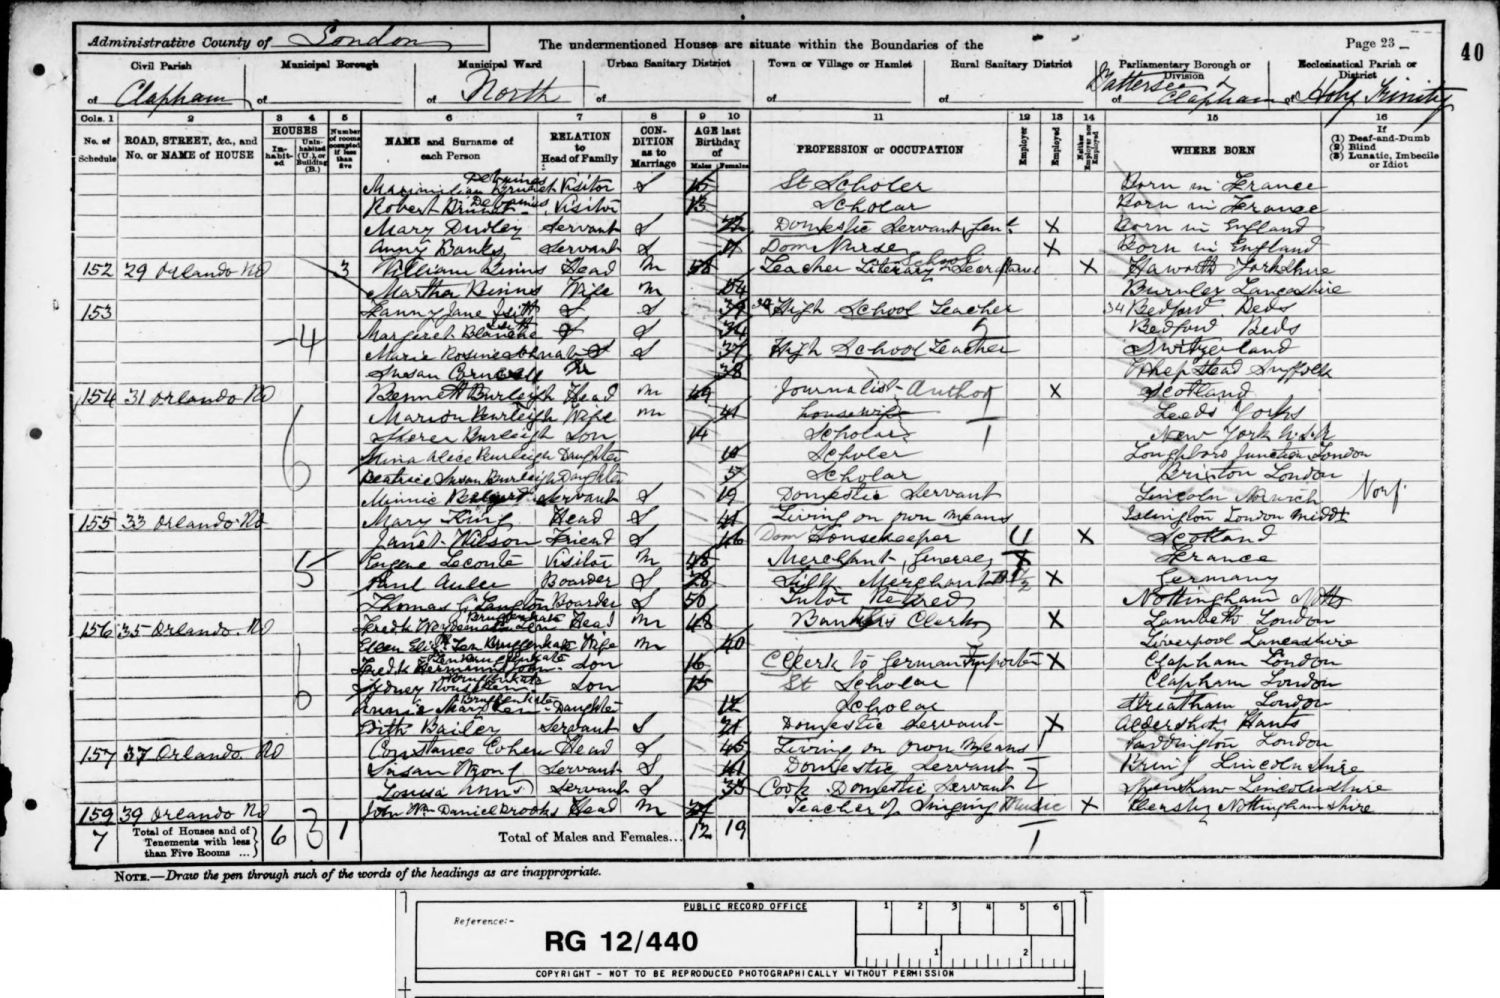 Administrative County of London
The undermentioned Houses are situate within the Boundaries of the
Page 23
40
Civil Parish of Clapham
Municipal Borough of
Municipal Ward of North
Urban Sanitary District of
Town or Village or Hamlet of
Rural Sanitary District of
Parliamentary Borough or Division of Battersea & Clapham
Ecclesiastical Parish or District of Holy Trinity
Cols. 1 2 3 4 5 6 7 8 9 10 11 12 13 14 15 16
No. of Schedule
ROAD, STREET, &c., and No. or NAME of HOUSE
HOUSES
Inhabited
Uninhabited (U.), or Building (B.)
Number of rooms occupied if less than five
NAME and Surname of each Person
RELATION to Head of Family
CONDITION as to Marriage
AGE last Birthday of
Males Females
PROFESSION or OCCUPATION
Employer
Employed
Neither Employer nor Employed
WHERE BORN
If (1) Deaf-and-Dumb (2) Blind (3) Lunatic, Imbecile or Idiot
Maximilian Visitor S 15 St Scholer Born in France
Robert Visitor 13 Scholar Born in France
Mary Dudley Servant S 22 Domestic Servant Gen. X Born in England
Anny Banks Servant S 17 Dom Nurse X Born in England
152 29 Orlando Rd 3 William Binns Head M 58 Teacher Literary School X Haworth Yorkshire
Martha Binns Wife M 54 Burnley Lancashire
153 Fanny Jane Isitt S S 39 High School Teacher 34 Bedford Beds
4 Margaret Blanche Isitt S S 34 Bedford Beds
Marie Rosine S 37 High School Teacher Switzerland
Susan 38 Suffolk
154 31 Orlando Rd Bennett Burleigh Head M 49 Journalist Author X Scotland
Marion Burleigh Wife M 41 housewife Leeds Yorks
Burleigh Son 14 Scholar New York U.S.A
6 Mina Alice Burleigh Daughter 10 Scholer Loughboro Junction London
Beatrice Susan Burleigh Daughter 5 Scholar Brixton London
Minnie Servant S 19 Domestic Servant Lincoln Norwich Norf
155 33 Orlando Rd Mary King Head S 41 Living on own means Islington London Middx
Janet Wilson Friend S 46 Dom Housekeeper X Scotland
5 Eugene Lecomte Visitor M 48 Merchant, General X France
Paul Boarder S 28 Silk Merchant X Germany
Thomas C. Langton Boarder S 50 Tutor Retired Nottingham Notts
156 35 Orlando Rd Fredk Ten Bruggenkate Head M 48 Bankers Clerk X Lambeth London
Ellen Elizth Ten Bruggenkate Wife M 40 Liverpool Lancashire
Fredk Hermann Ten Bruggenkate Son 16 Clerk to German Importer X Clapham London
Sydney Ten Bruggenkate Son 15 St Scholar Clapham London
6 Annie Mary Ten Bruggenkate Daughter 12 Scholar Streatham London
Edith Bailey Servant S 21 Domestic Servant X Aldershot Hants
157 37 Orlando Rd Constance Cohen Head S 45 Living on own means Paddington London
Susan Servant S 41 Domestic Servant Lincolnshire
Louisa Servant S 33 Cook Domestic Servant Lincolnshire
159 39 Orlando Rd 3 John Wm Daniel Brooks Head M 37 Teacher of Singing Music X Nottinghamshire
7 Total of Houses and of Tenements with less than Five Rooms ... 6 1 Total of Males and Females... 12 19
NOTE.—Draw the pen through such of the words of the headings as are inappropriate.
PUBLIC RECORD OFFICE
1 2 3 4 5 6
Reference:-
RG 12/440
1 2
COPYRIGHT - NOT TO BE REPRODUCED PHOTOGRAPHICALLY WITHOUT PERMISSION